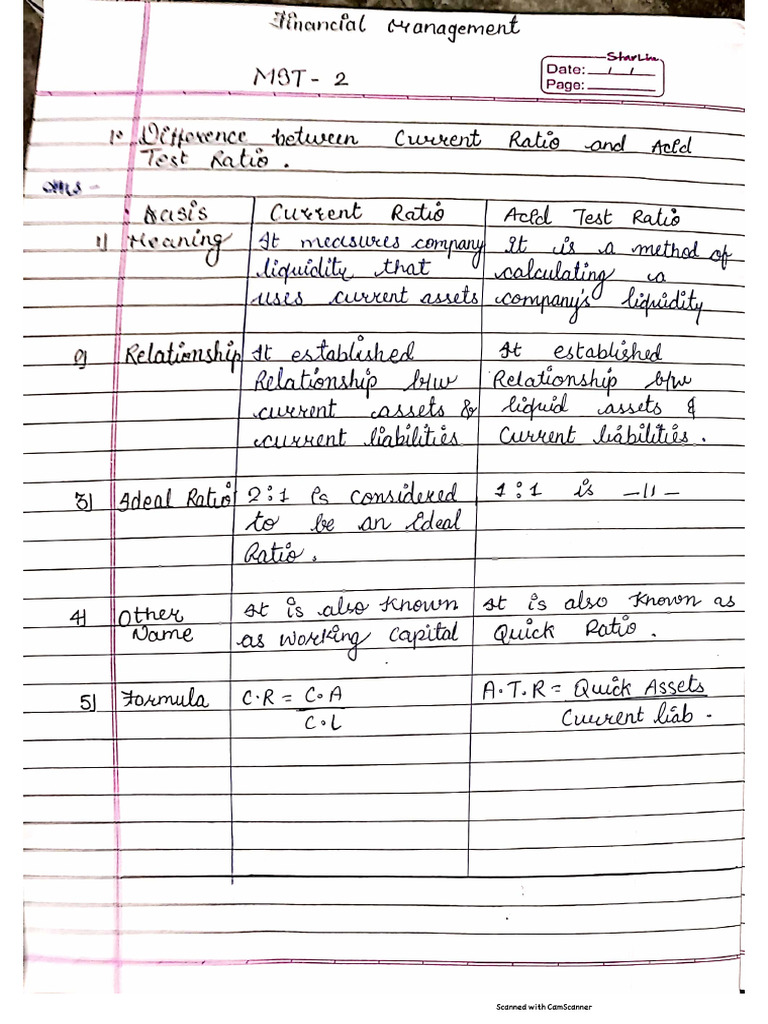 Financial Management
StarLine
MST - 2
Date: / /
Page:
1. Difference between Current Ratio and Acid
Test Ratio.
Ans -
Basis Current Ratio Acid Test Ratio
1) Meaning It measures company It is a method of
liquidity that calculating a
uses current assets company's liquidity
2) Relationship It established It established
Relationship b/w Relationship b/w
current assets & liquid assets &
current liabilities Current liabilities.
3) Ideal Ratio 2:1 is considered 1:1 is -11-
to be an Ideal
Ratio.
4) Other It is also known It is also known as
Name as working capital Quick Ratio.
5) Formula C.R = C.A A.T.R = Quick Assets
C.L Current liab.
Scanned with CamScanner